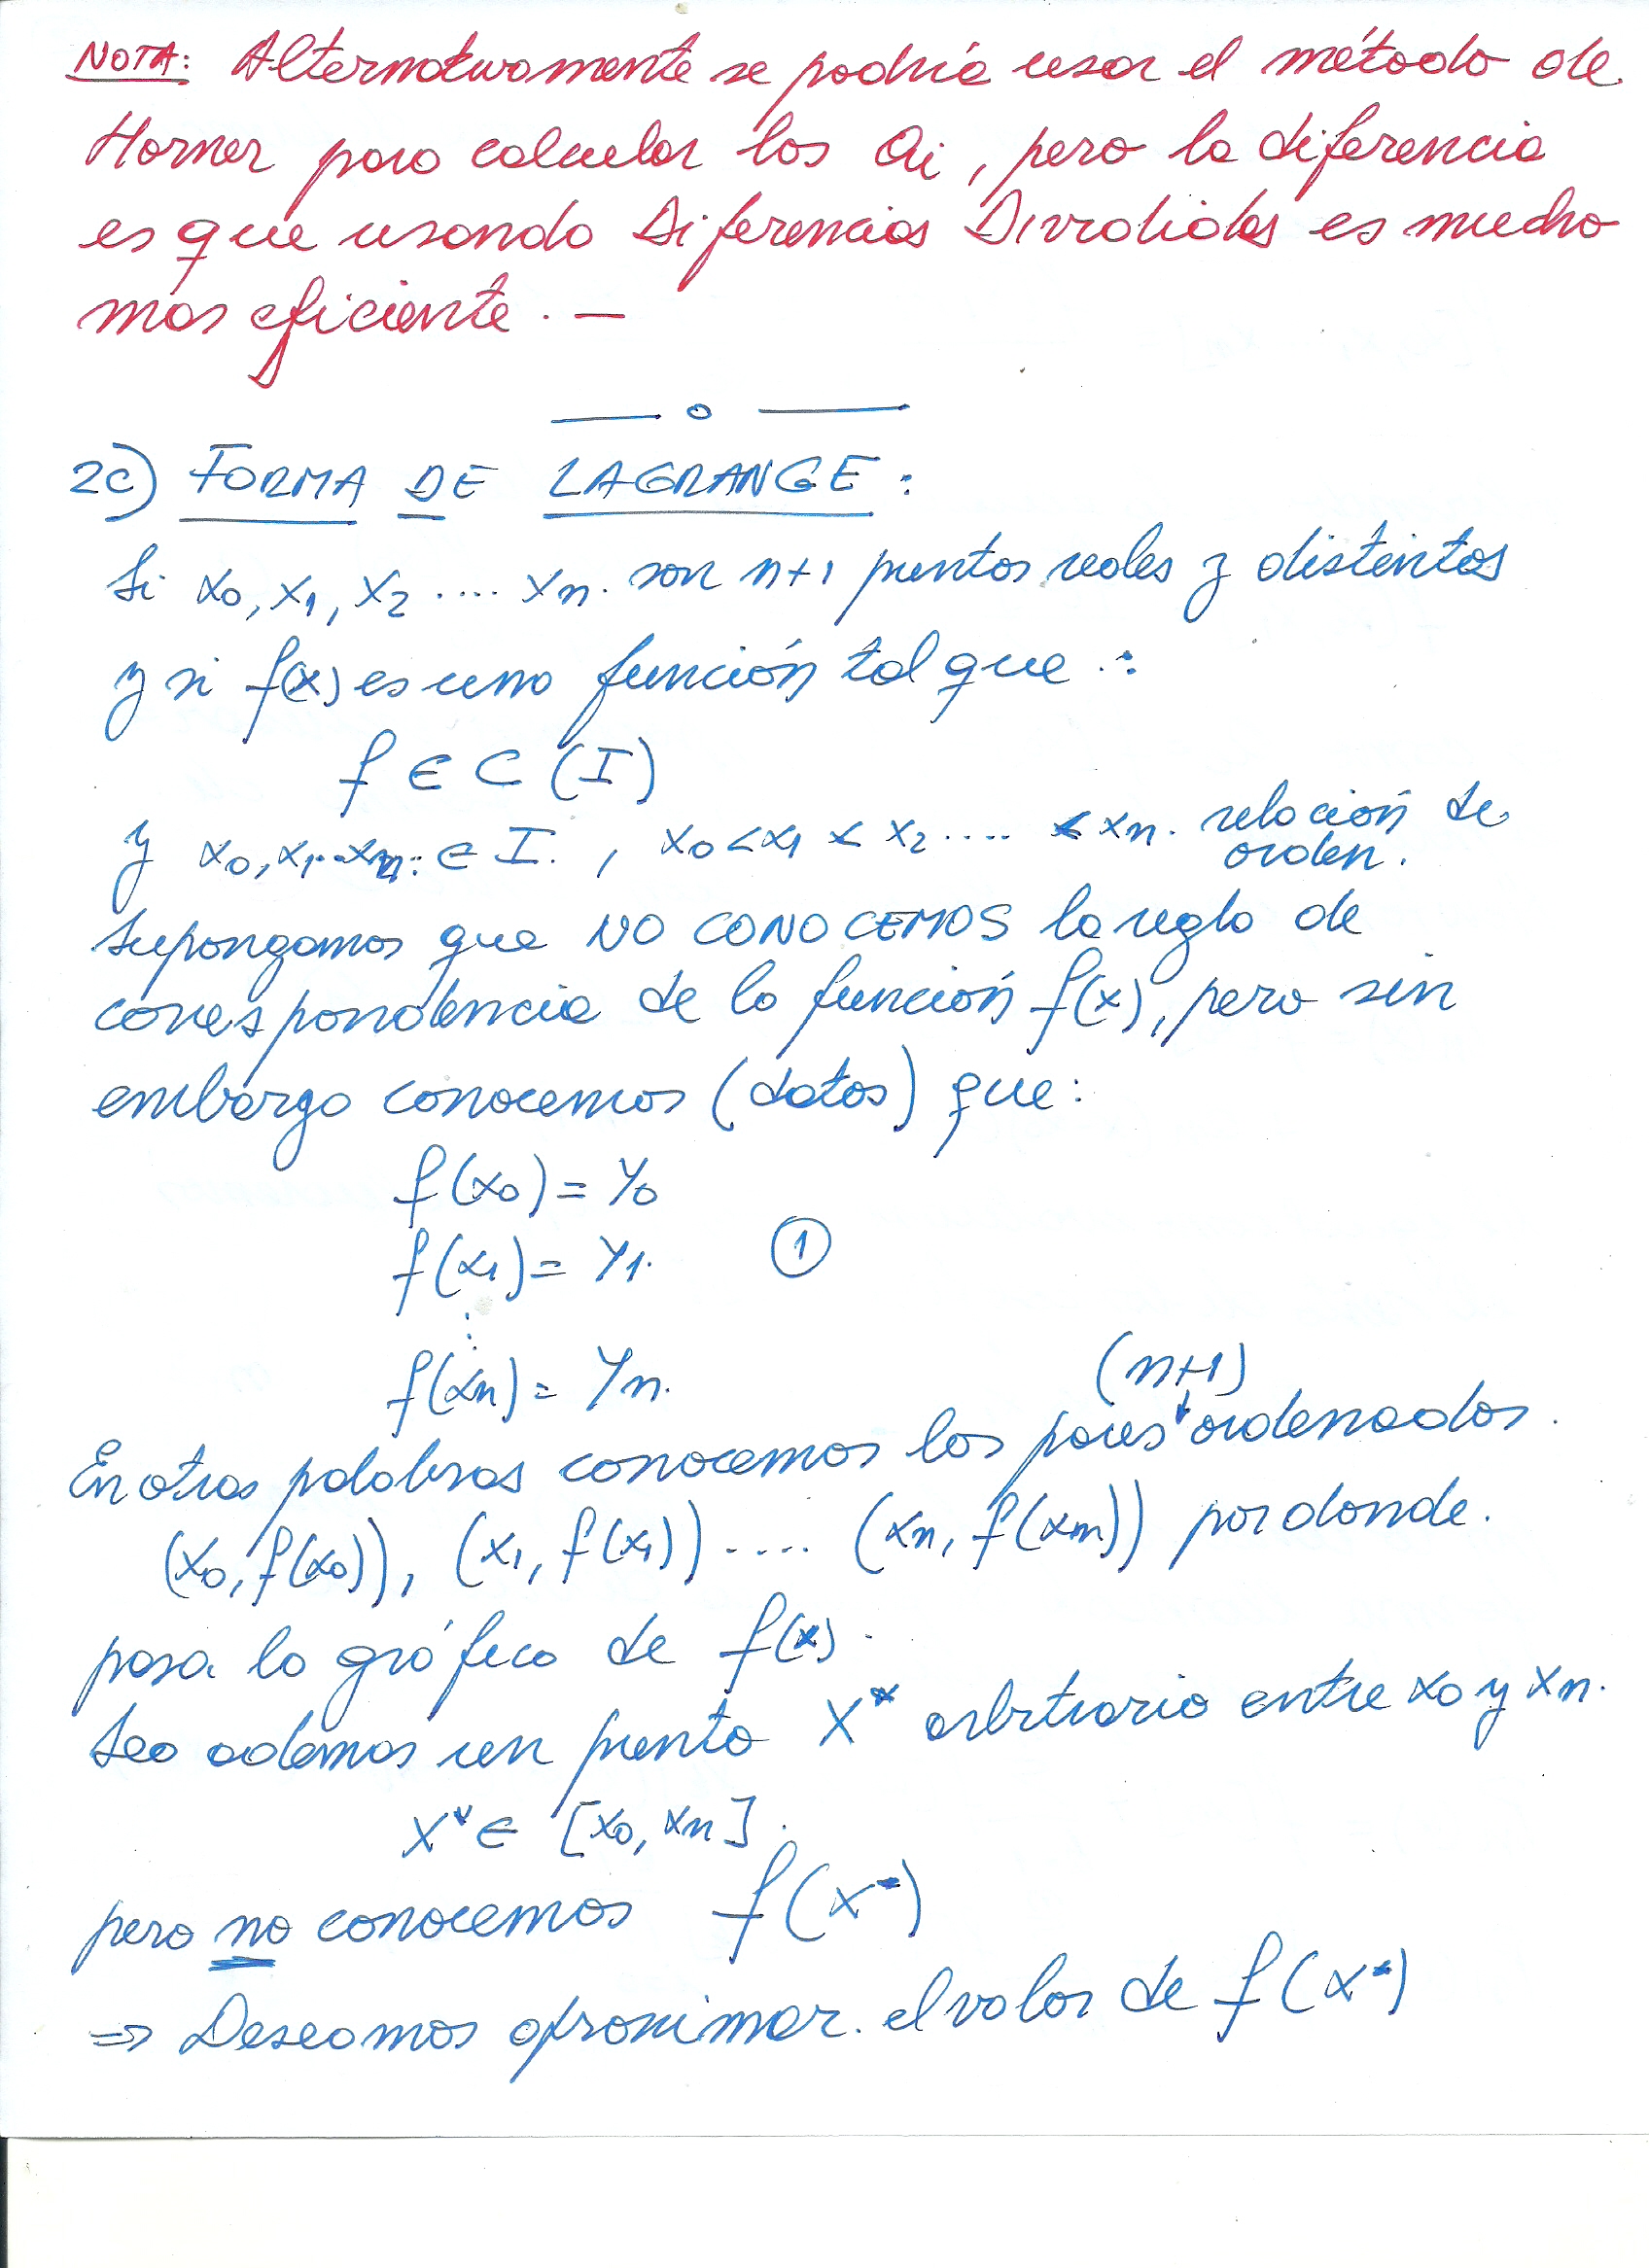 NOTA: Alternativamente se podría usar el método de
Horner para calcular los ai, pero la diferencia
es que usando Diferencias Divididas es mucho
mas eficiente. —
— o —
2c) FORMA DE LAGRANGE:
Si x0, x1, x2 .... xn. son n+1 puntos reales y distintos
y si f(x) es una función tal que :
f ∈ C (I)
y x0, x1..xn: ∈ I. , x0 < x1 < x2 .... < xn. relación de
orden.
Supongamos que NO CONOCEMOS la regla de
correspondencia de la función f(x), pero sin
embargo conocemos (datos) que:
f(x0) = y0
f(x1) = y1. ①
⋮
f(xn) = yn.
(n+1)
En otras palabras conocemos los pares ↓ ordenados.
(x0, f(x0)), (x1, f(x1)) .... (xn, f(xn)) por donde.
pasa la gráfica de f(x).
Sea ademas un punto x* arbitrario entre x0 y xn.
x* ∈ [x0, xn].
pero no conocemos f(x*)
⇒ Deseamos aproximar. el valor de f(x*)